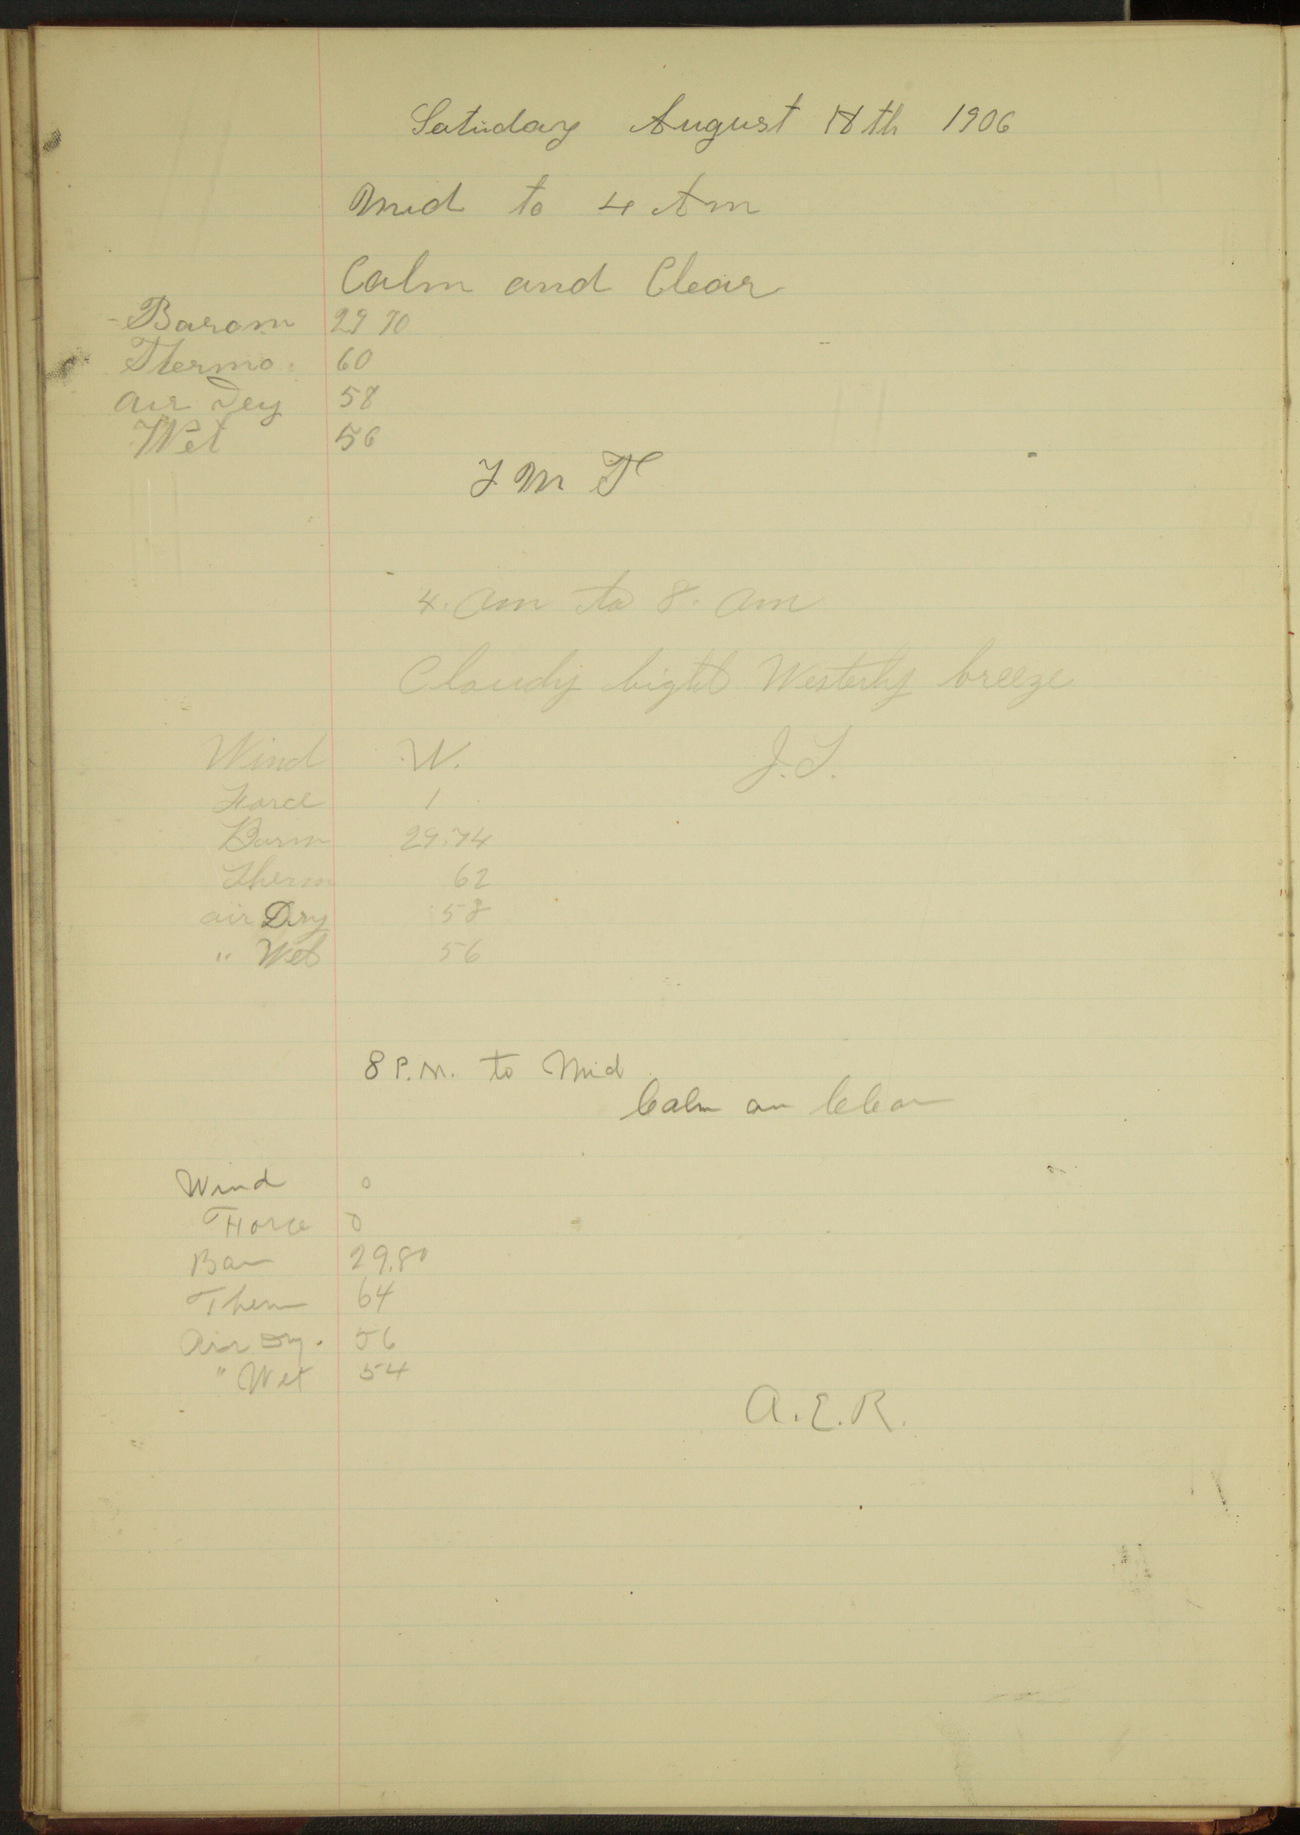 Saturday August 18th 1906
Mid to 4 Am
Calm and Clear
Barom 29 70
Thermo. 60
Air Dry 58
Wet 56
F M T
4. am to 8. am
Cloudy light Westerly breeze
Wind W. J.S.
Force 1
Barm 29.74
Therm 62
air Dry 58
" Wet 56
8 P.M. to Mid
Calm an Clear
Wind 0
Force 0
Bar 29.80
Therm 64
Air Dry. 56
" Wet 54
A.E.R.